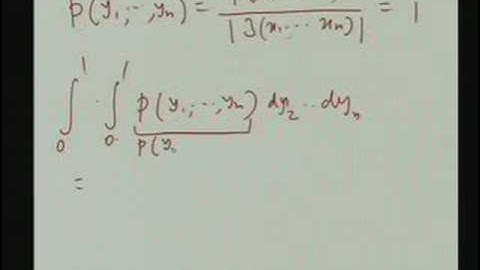 p(y₁, ..., yₙ) = / |J(x₁ ... xₙ)| = 1
∫₀¹ · ∫₀¹ p(y₁, ..., yₙ) dy₂ ... dyₙ
p(y₁
=